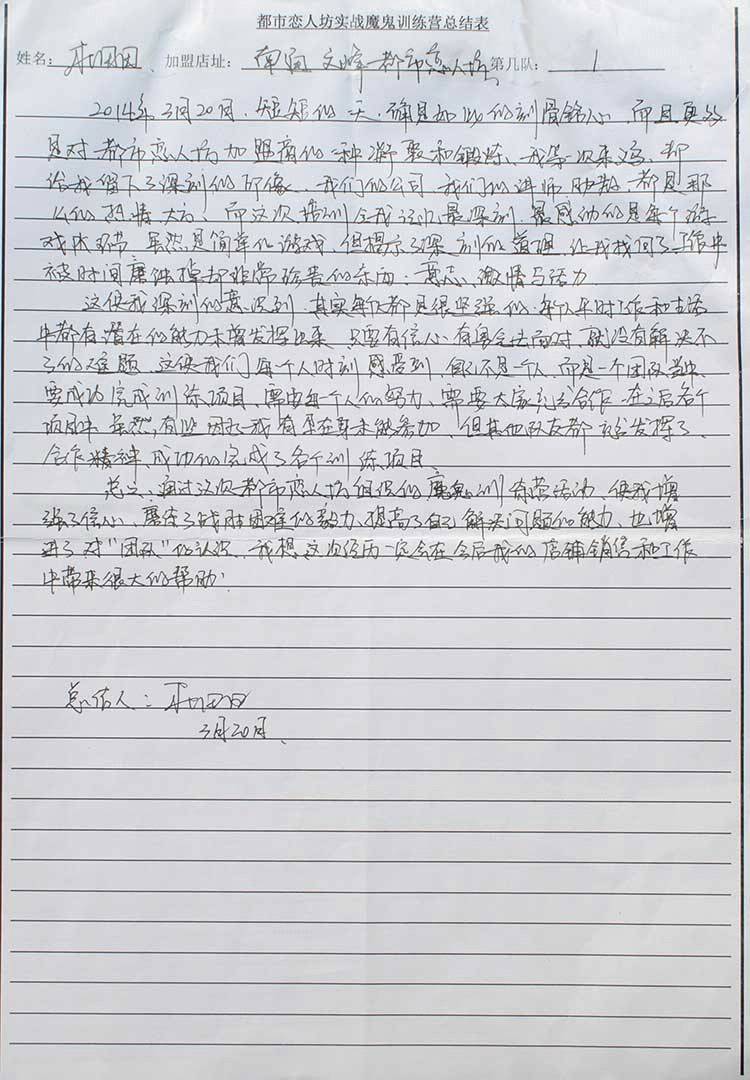 都市恋人坊实战魔鬼训练营总结表
姓名: 加盟店址: 南通文峰都市恋人坊 第几队: 1
2014年3月20日,短短的一天,确是如此的刻骨铭心,而且更多
是对都市恋人坊加盟商的一种凝聚和锻炼、我每一次来这,都
给我留下了深刻的印像、我们的公司,我们的讲师,助教,都是那
么的热情大方、而这次培训令我记忆最深刻,最感动的是每个游
戏的环节,虽然是简单的游戏,但揭示了深刻的道理,让我找回了工作中
被时间磨蚀掉却非常珍贵的东西:意志、激情与活力
这使我深刻的意识到,其实每个人都是很坚强的,每个人平时工作和生活
中都有潜在的能力未曾发挥出来,只要有信心,有勇气去面对,就没有解决不
了的难题、这使我们每个人时刻感受到,自己不是一个人,而是一个团队当中,
要成功完成训练项目,需由每个人的努力、需要大家充分合作、在之后各个
项目中,虽然,有些因为我有孕在身未能参加,但其他队友都充分发挥了
合作精神、成功的完成了各个训练项目、
总之,通过这次都市恋人坊组织的魔鬼训练营活动,使我增
强了信心、磨练了战胜困难的毅力、提高了自己解决问题的能力,也增
进了对"团队"的认识、我想这次经历一定会在今后我的店铺销售和工作
中带来很大的帮助!
总结人:
3月20日、